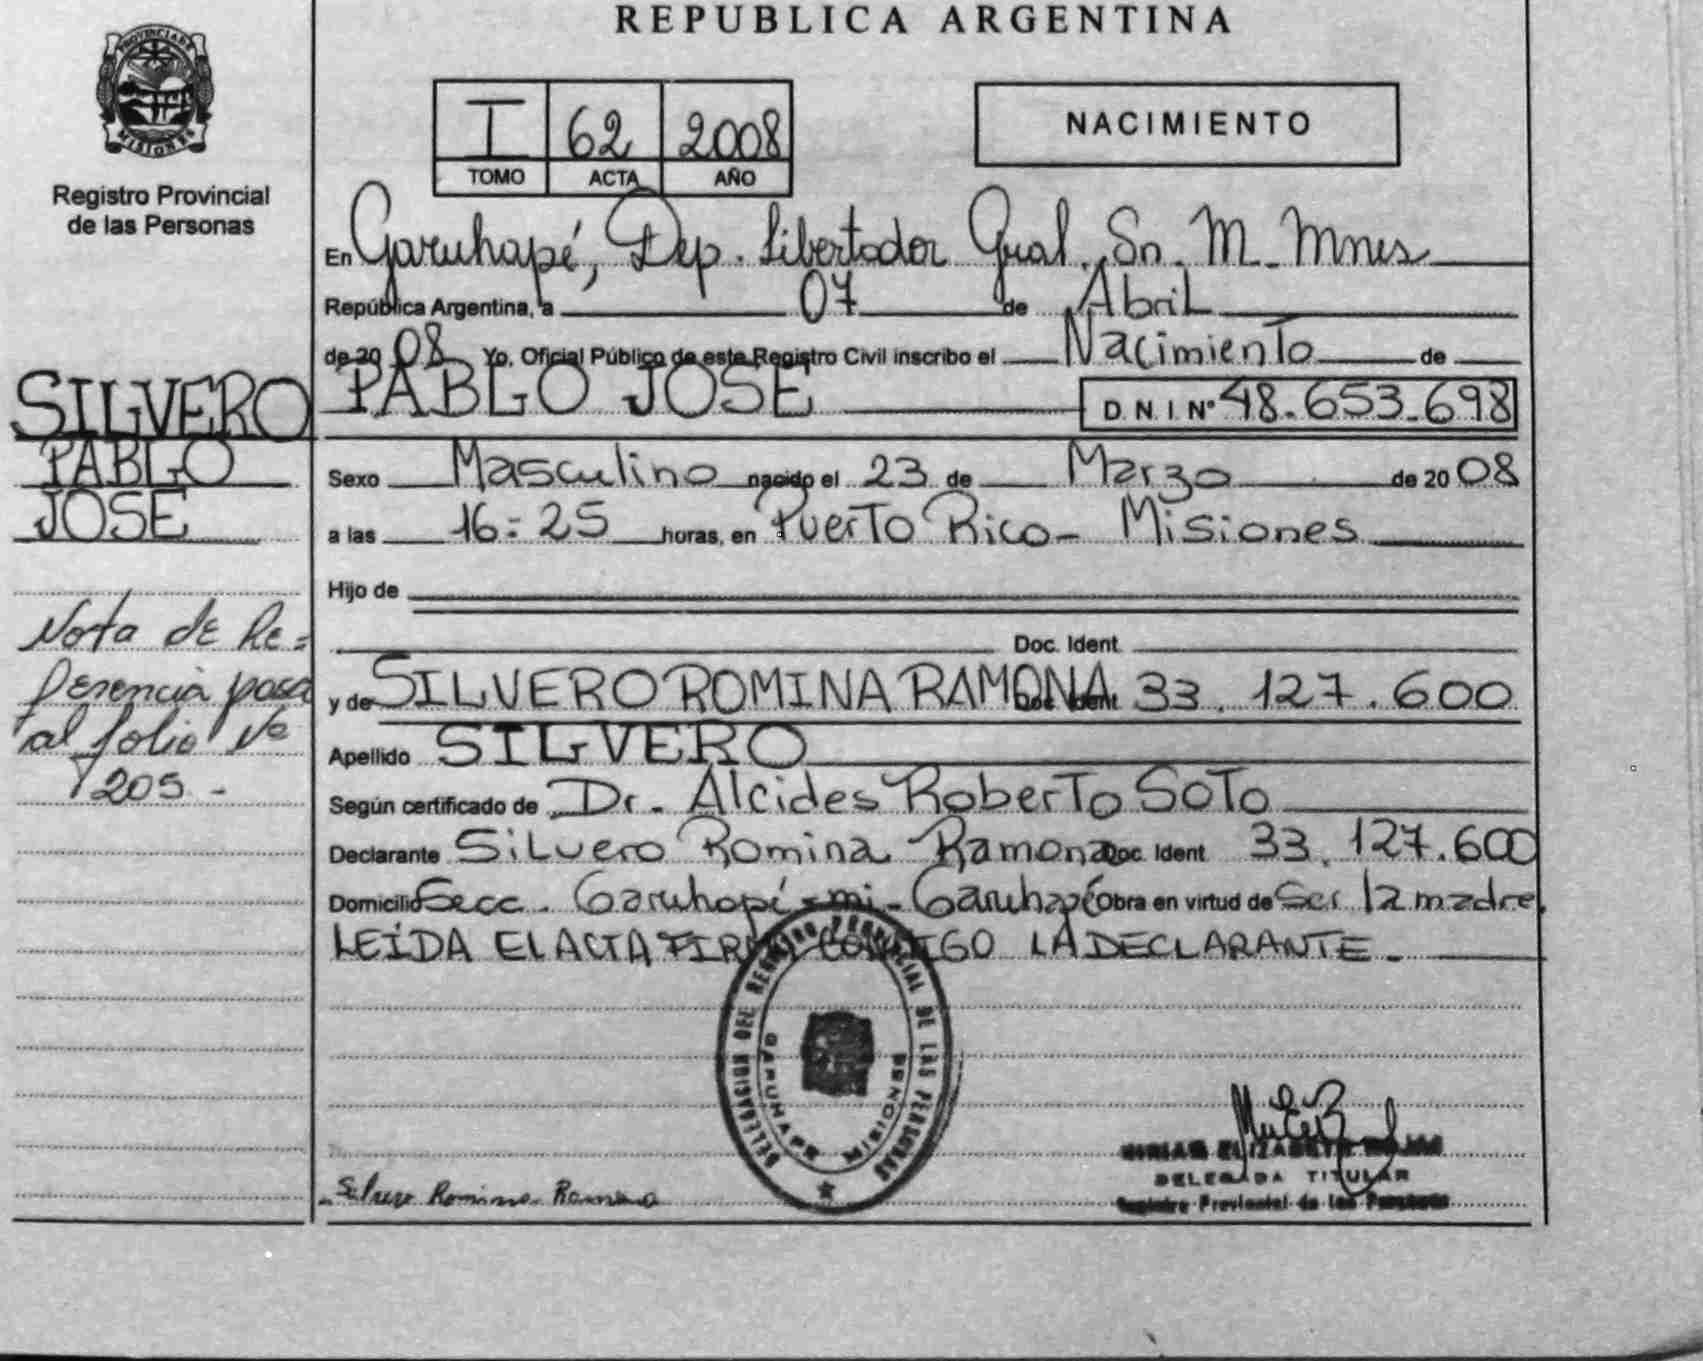 REPUBLICA ARGENTINA
PROVINCIA DE
MISIONES
Registro Provincial
de las Personas
I 62 2008
TOMO ACTA AÑO
NACIMIENTO
En Garuhapé, Dep. Libertador Gral. Sn. M. Mnes
República Argentina, a 07 de Abril
de 20 08 Yo, Oficial Público de este Registro Civil inscribo el Nacimiento de
SILVERO PABLO JOSE D.N.I Nº 48.653.698
PABLO
JOSE
Sexo Masculino nacido el 23 de Marzo de 20 08
a las 16:25 horas, en Puerto Rico - Misiones
Hijo de
Doc. Ident.
y de SILVERO ROMINA RAMONA Doc. Ident. 33.127.600
Apellido SILVERO
Según certificado de Dr. Alcides Roberto Soto
Declarante Silvero Romina Ramona Doc. Ident. 33.127.600
Domicilio Secc. Garuhapé-mi- Garuhapé obra en virtud de Ser la madre.
LEÍDA EL ACTA FIRMA CONMIGO LA DECLARANTE.-
Nota de Re=
ferencia pasa
al folio Nº
205.-
DELEGACION DEL REGISTRO PROVINCIAL DE LAS PERSONAS
GARUHAPE MISIONES
Silvero Romina Ramona
MIRIAM ELIZABETH ROJAS
DELEGADA TITULAR
Registro Provincial de las Personas